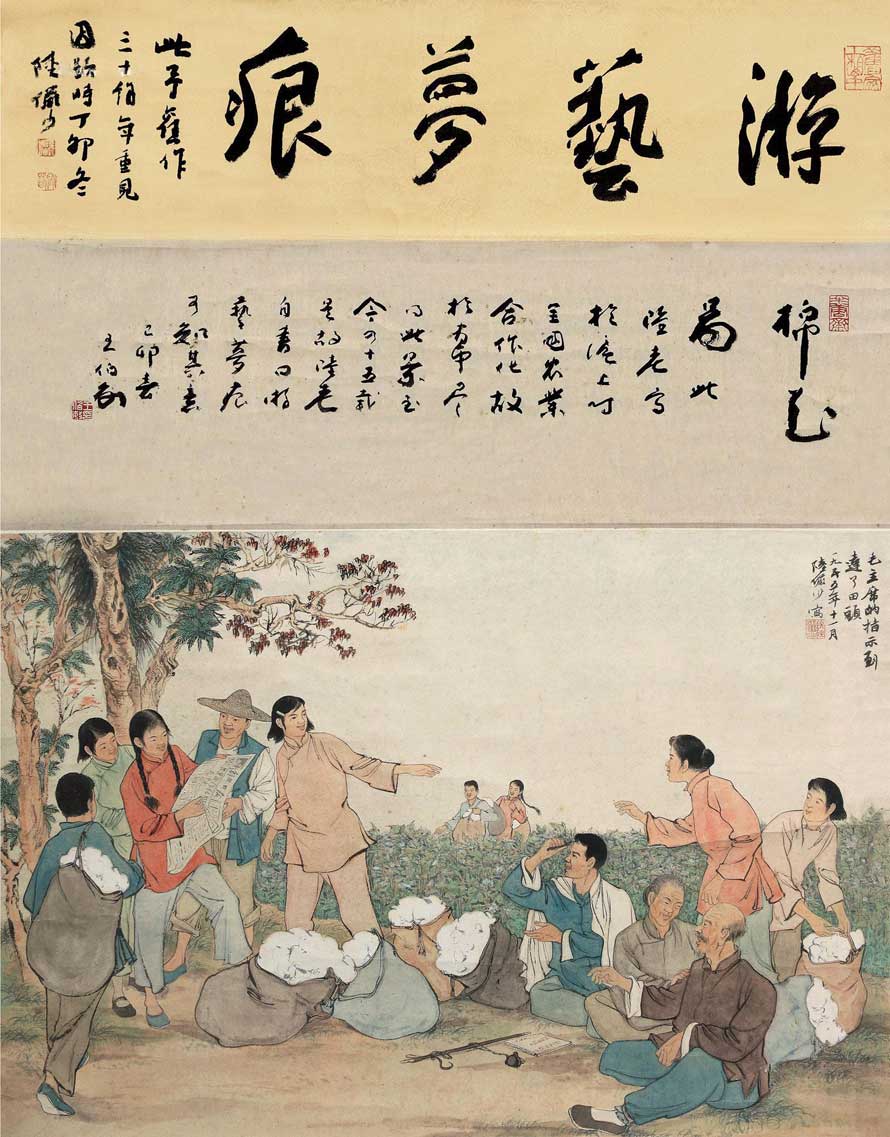 游藝夢痕
此予舊作
三十餘年重見
因題時丁卯冬
陸儼少
棉花
圖此
陸老寫
於滬上時
全國農業
合作化故
於
此景至
今四十五載
是故陸老
自書曰游
藝夢痕
可其意
己卯春
王伯敏
毛主席的指示到
達了田頭
一九五五年十一月
陸儼少寫